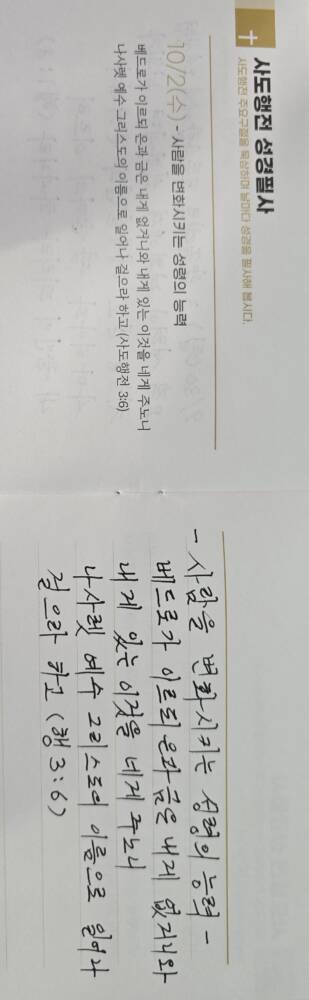 사도행전 성경필사
사도행전 주요구절을 묵상하며 날마다 성경을 필사해 봅시다.
10/2(수) - 사람을 변화시키는 성령의 능력
베드로가 이르되 은과 금은 내게 없거니와 내게 있는 이것을 네게 주노니
나사렛 예수 그리스도의 이름으로 일어나 걸으라 하고 (사도행전 3:6)
- 사람을 변화시키는 성령의 능력 -
베드로가 이르되 은과 금은 내게 없거니와
내게 있는 이것을 네게 주노니
나사렛 예수 그리스도의 이름으로 일어나
걸으라 하고 (행 3:6)